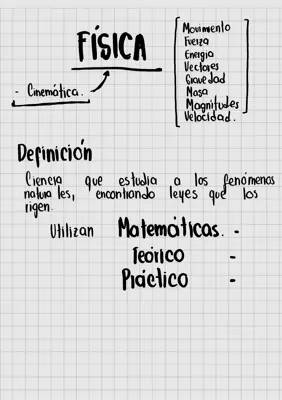 FÍSICA
- Cinemática.
Movimiento
Fuerza
Energia
Vectores
Gravedad
Masa
Magnitudes
Velocidad.
Definición
Ciencia que estudia a los fenómenos
naturales, encontrando leyes que los
rigen.
Utilizan Matemáticas. -
Teórico -
Práctico -